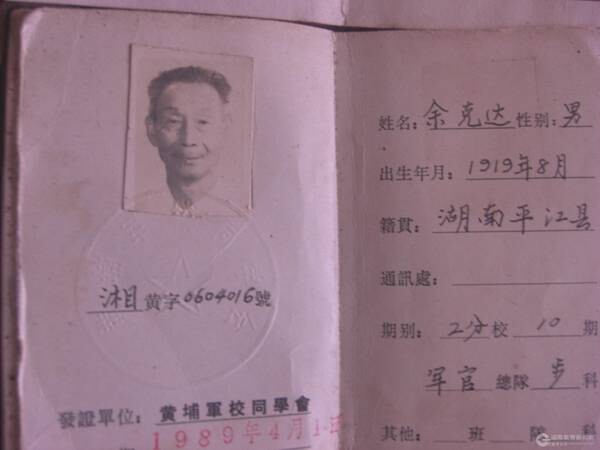 湘黄字0604016號
發證單位：黄埔軍校同學會
1989年4月1
姓名：余克达性别：男
出生年月：1919年8月
籍貫：湖南平江县
通訊處：
期别：2分校10期
军官總隊步科
其他：班隊科